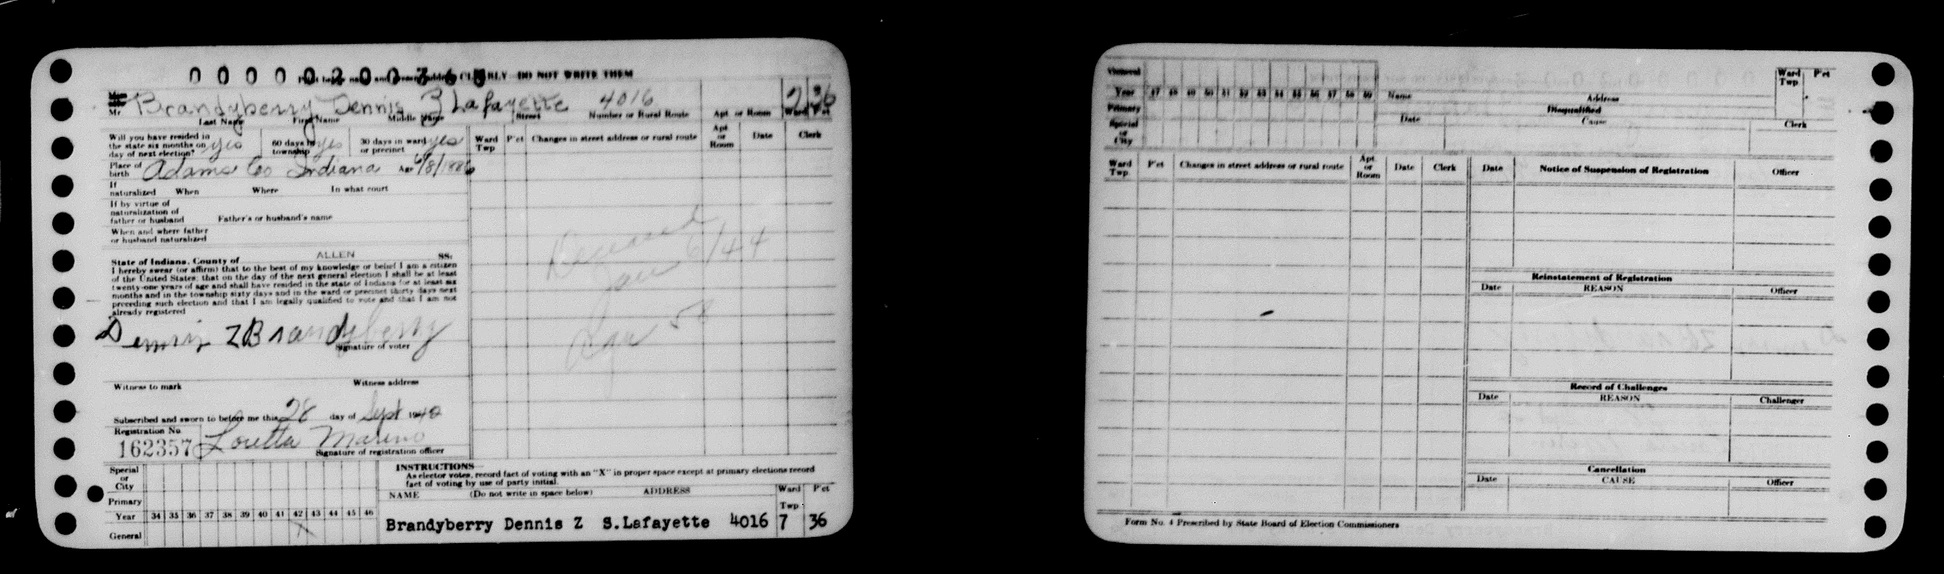 Print last name and address CLEARLY DO NOT WRITE THEM
Mr Brandyberry Dennis Z Lafayette 4016 7 36
Last Name First Name Middle Name Street Number or Rural Route Apt or Room Ward Pct
Will you have resided in the state six months on day of next election? yes 60 days in township yes 30 days in ward or precinct yes
Place of birth Adams Co Indiana Age 6/8/1886
If naturalized When Where In what court
If by virtue of naturalization of father or husband Father's or husband's name
When and where father or husband naturalized
State of Indiana, County of ALLEN SS:
I hereby swear (or affirm) that to the best of my knowledge or belief I am a citizen
of the United States; that on the day of the next general election I shall be at least
twenty-one years of age and shall have resided in the state of Indiana for at least six
months and in the township sixty days and in the ward or precinct thirty days next
preceding such election and that I am legally qualified to vote and that I am not
already registered
Dennis Z Brandyberry
Signature of voter
Witness to mark Witness address
Subscribed and sworn to before me this 28 day of Sept 1940
Registration No.
162357 Loretta Marino
Signature of registration officer
Special or City
Primary
Year 34 35 36 37 38 39 40 41 42 43 44 45 46
General X
Ward Twp P'ct Changes in street address or rural route Apt or Room Date Clerk
Deceased
Jan 6/44
Age 58
INSTRUCTIONS—
As elector votes, record fact of voting with an "X" in proper space except at primary elections record
fact of voting by use of party initial.
NAME (Do not write in space below) ADDRESS Ward Twp P'ct
Brandyberry Dennis Z S.Lafayette 4016 7 36
General
Year 47 48 49 50 51 52 53 54 55 56 57 58 59
Primary
Special or City
Name Address Ward Twp P'ct
Disqualified
Date Cause Clerk
Ward Twp. P'ct Changes in street address or rural route Apt. or Room Date Clerk
Date Notice of Suspension of Registration Officer
Reinstatement of Registration
Date REASON Officer
Record of Challenges
Date REASON Challenger
Cancellation
Date CAUSE Officer
Form No. 4 Prescribed by State Board of Election Commissioners